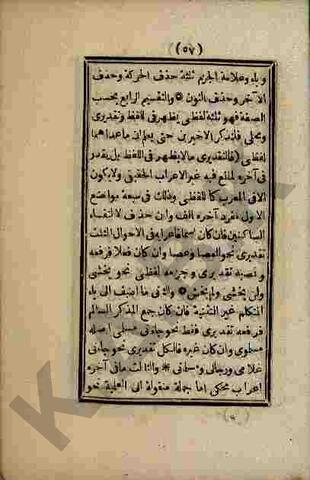 (٥٧)
وياء وعلامة الجزم ثلثة حذف الحركة وحذف
الآخر وحذف النون والتقسيم الرابع بحسب
الصفة فهو ثلثة لفظى يظهر فى اللفظ وتقديرى
ومحلى فلنذكر الاخيرين حتى يعلم ان ماعداهما
لفظى (فالتقديرى مالا يظهر فى اللفظ بل يقدر
فى آخره لمانع فيه غير الاعراب الحقيقى ولا يكون
الا فى المعرب كاللفظى وذلك فى سبعة مواضع
الاول مفرد آخره الف وان حذف لالتقاء
الساكنين فان كان اسما فاعرابه فى الاحوال الثلث
تقديرى نحو العصا وعصا وان كان فعلا فرفعه
ونصبه تقديرى وجزمه لفظى نحو يخشى
وان يخشى ولم يخش والثانى ما اضيف الى ياء
المتكلم غير التثنية فان كان جمع المذكر السالم
فرفعه تقديرى فقط نحو جاءنى مسلمى اصله
مسلموى وان كان غيره فالكل تقديرى نحو جاءنى
غلامى ورجالى ومسلماتى والثالث مافى آخره
اعراب محكى اما جملة منقولة الى العلمية نحو
K